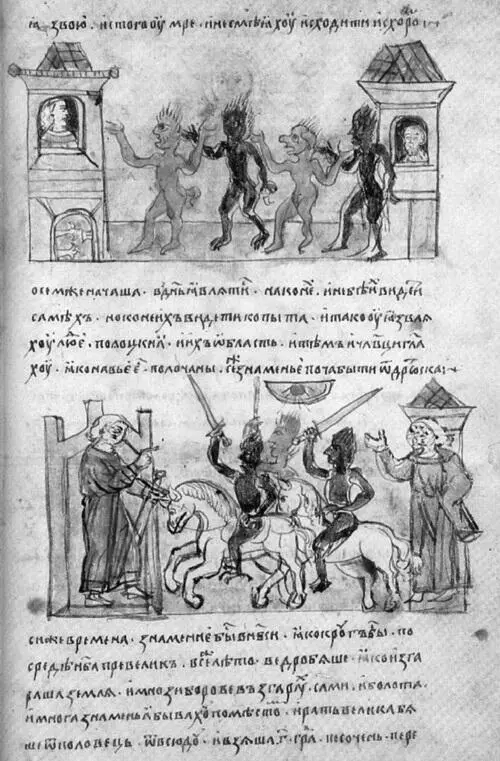 ꙗзвою . и с того оумре . и не смѣꙗхоу исходити исхоро
осемже начаша . в днь ꙗвлѧти . на коне . и не бѣ ви видети
самѣхъ . но конехъ видети копыта . и тако оуꙗзвлѧ
хоу люе . полоцскиꙗ . и ихъ ѡбласть . и тѣмъ и чл҃вци гл҃а
хоу . ꙗко навье е полочаны . се же знаменье поча быти ѿ дрюска :
си же времена . знамение бы в нбси . ꙗко кроугъ бы . по
средѣ нба превеликъ . в се же лѣто . ведро бѧше . ꙗко изга
раше землѧ . и мнози борове възгарꙗх сами . и болота .
и многа знаменьꙗ бывахоу по мѣсто . и рать велика бѧ
ше ѿ половець . ѿвсюдоу . и взѧша . г . гра . песочень . пере